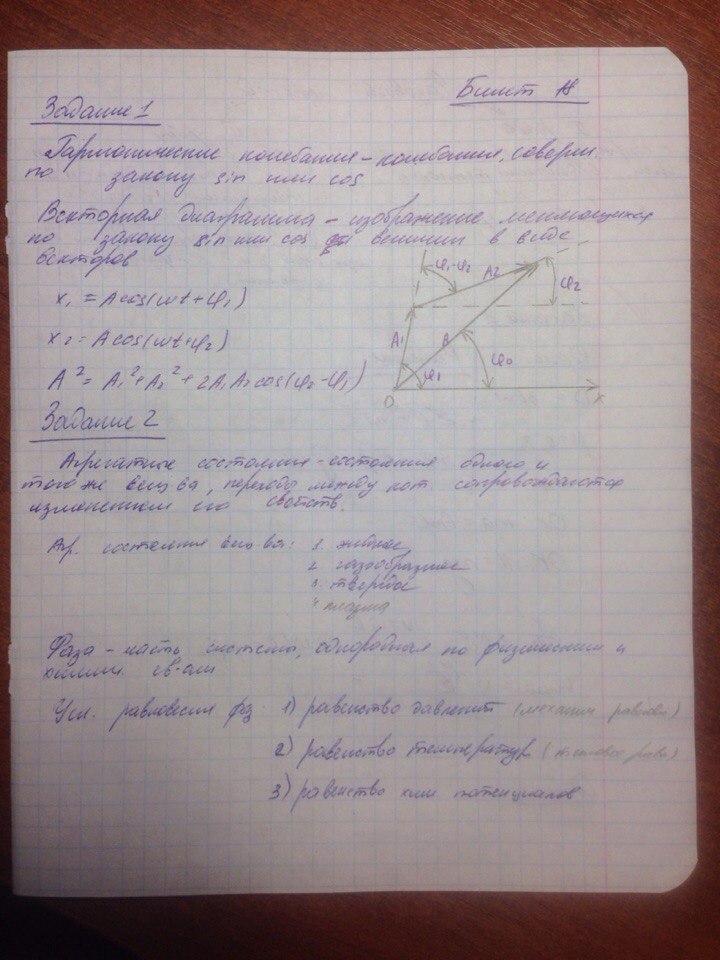 Билет 18
Задание 1
Гармонические колебания – колебания, соверш.
по закону sin или cos
Векторная диаграмма – изображение меняющихся
по закону sin или cos величин в виде
векторов
x₁ = A cos(ωt + φ₁)
x₂ = A cos(ωt + φ₂)
A² = A₁² + A₂² + 2A₁A₂cos(φ₂ - φ₁)
φ₁-φ₂
A₂
φ₂
A₁
A
φ₀
φ₁
O
x
Задание 2
Агрегатные состояния – состояния одного и
того же вещ-ва, переходы между кот сопровождаются
изменением его свойств.
Аг. состояния вещ-ва: 1. жидкое
2. газообразное
3. твердое
4 плазма
Фаза – часть системы, однородная по физическим и
химич. св-вам
Усл. равновесия фаз: 1) равенство давлений (механич равновес)
2) равенство температур (тепловое равн)
3) равенство хим потенциалов